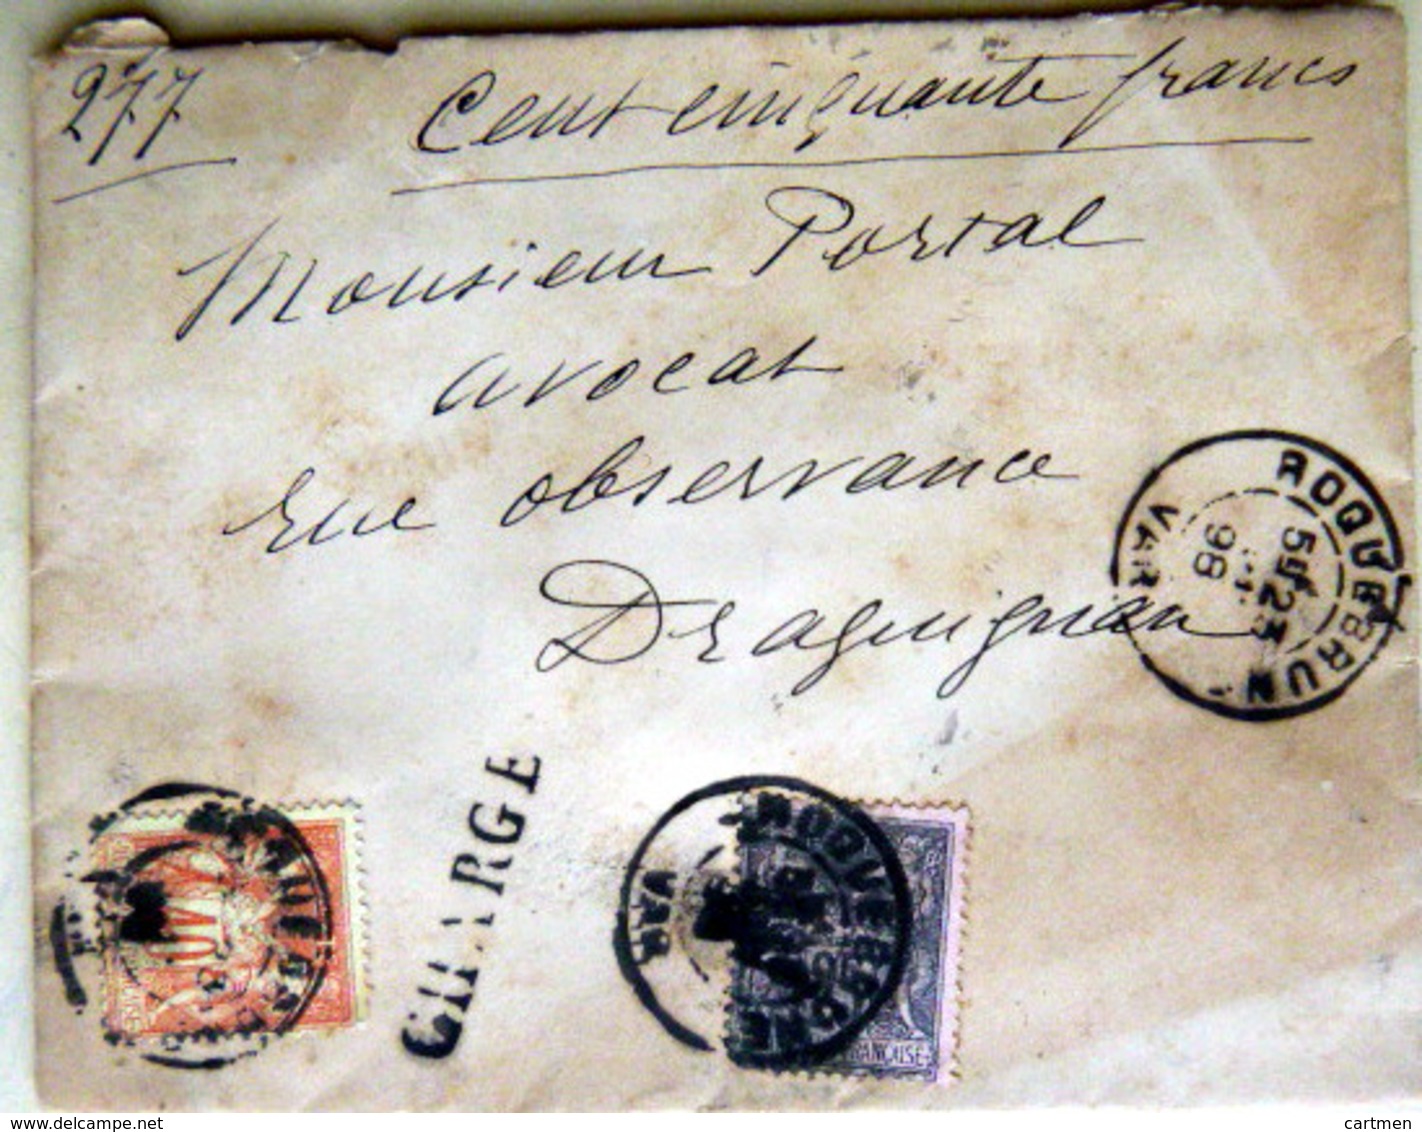 277
Cent cinquante francs
Monsieur Portal
avocat
rue observance
Draguignan
ROQUEBRUN
VAR
5E
23
98
CHARGE
40
VAR
ROQUEBRUNE
FRANÇAISE
delcampe.net
cartmen